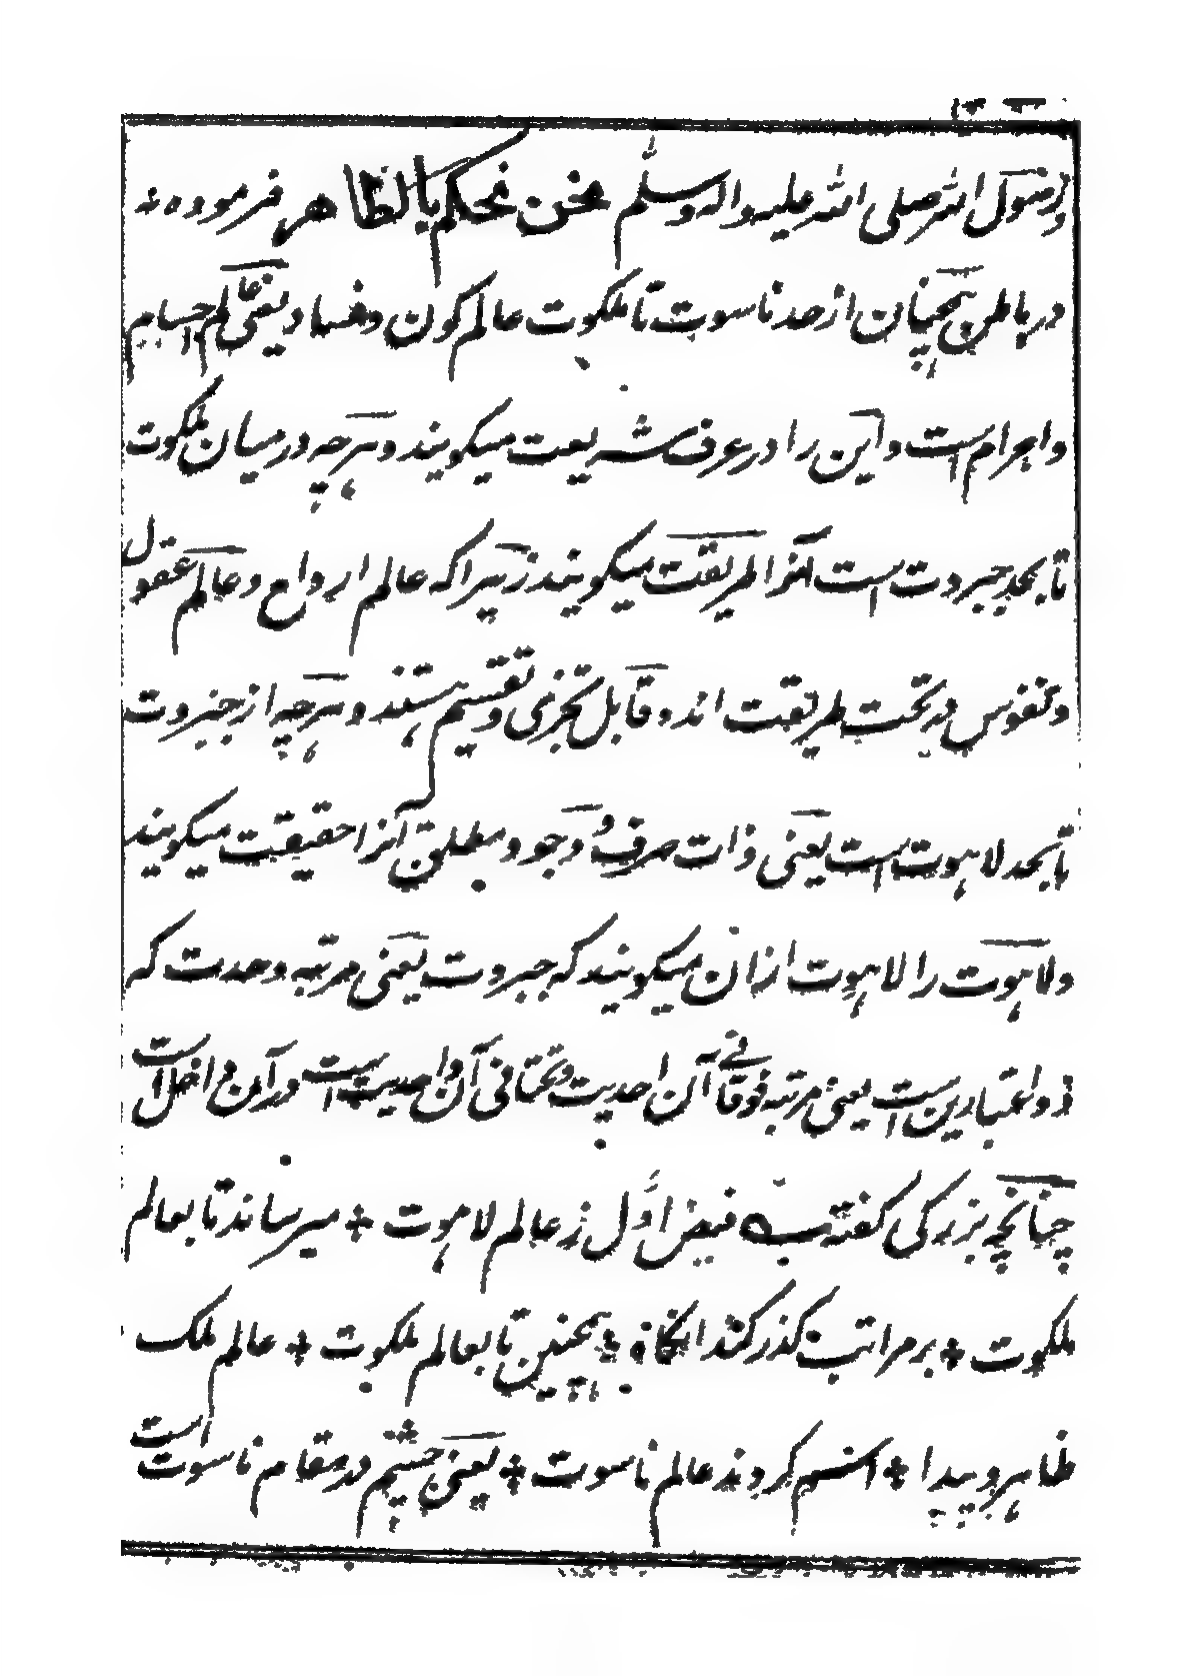 ورسول الله صلی الله علیه واله وسلم نحن نحکم بالظاهر فرموده نه
در باطن همچنان از حد ناسوت تا ملکوت عالم کون و فساد یعنی عالم اجسام
و اجرام است و این را در عرف شریعت میگویند و هرچه در میان ملکوت
تا بحد جبروت است آنرا طریقت میگویند زیرا که عالم ارواح و عالم عقول
و نفوس در تحت طریقت اند و قابل تجزی و تقسیم هستند و هرچه از جبروت
تا بحد لاهوت است یعنی ذات صرف و وجود مطلق آنرا حقیقت میگویند
و لاهوت را لاهوت ازان میگویند که جبروت یعنی مرتبه وحدت که
ذو اعتبارین است یعنی مرتبه فوقانی آن احدیت و تحتانی آن واحدیت است در آن داخل است
چنانچه بزرگی گفته فیض اول ز عالم لاهوت + میرساند تا بعالم
ملکوت + بر مراتب گذر کند انگاه + همچنین تا بعالم ملکوت + عالم ملک
ظاهر و پیدا + اسم کردند عالم ناسوت + یعنی چشم در مقام ناسوت است